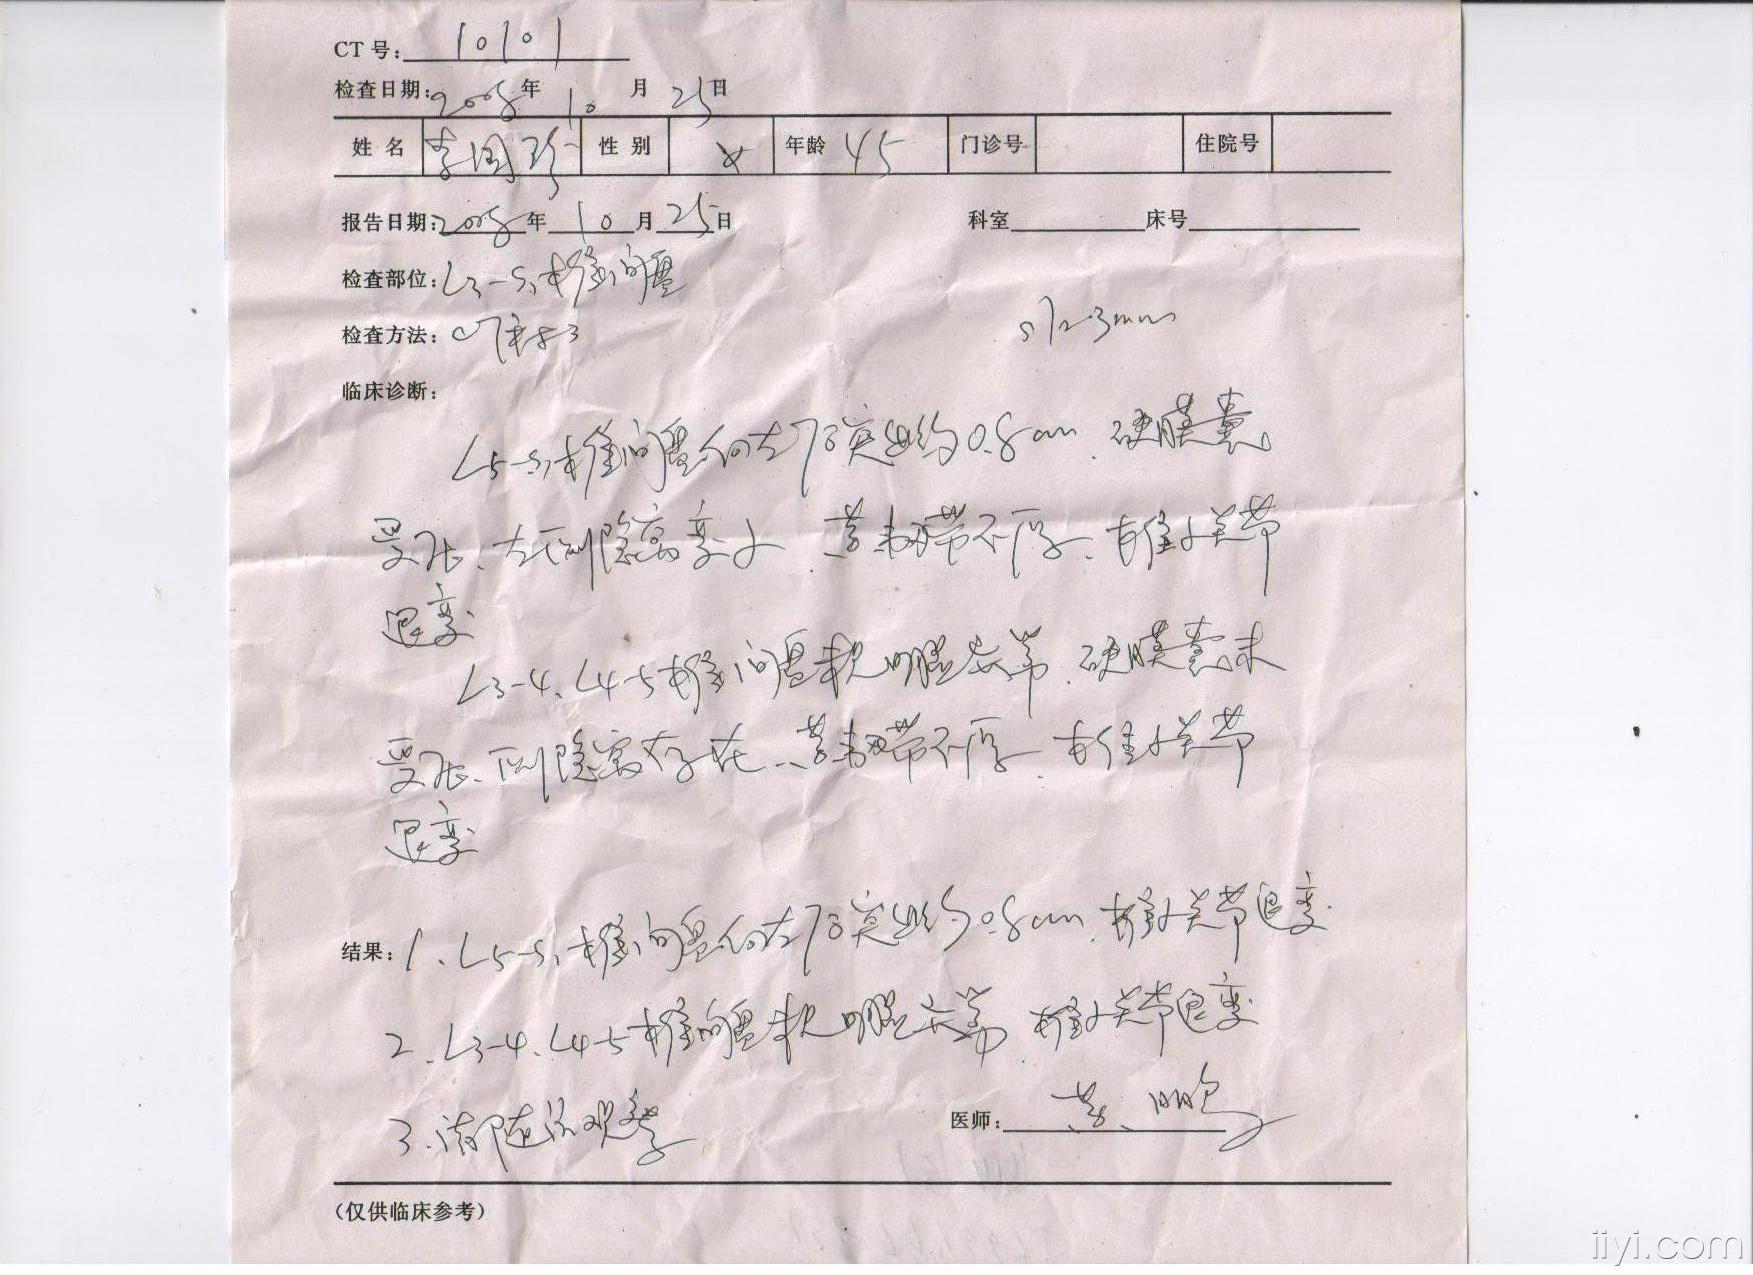 CT 号: 10101
检查日期: 2008 年 10 月 25 日
姓 名 李国珍 性 别 女 年龄 45 门诊号 住院号
报告日期: 2008 年 10 月 25 日 科室 床号
检查部位: L3-S1椎间盘
检查方法: CT平扫
3mm
临床诊断:
L5-S1椎间盘向左后突出约0.8cm、硬膜囊
受压、左侧隐窝变小、黄韧带不厚、椎小关节
退变
L3-4、L4-5椎间盘未见明显异常、硬膜囊未
受压、侧隐窝存在、黄韧带不厚、椎小关节
退变
结果: 1、L5-S1椎间盘向左后突出约0.8cm、椎小关节退变
2、L3-4、L4-5椎间盘未见明显异常、椎小关节退变
3、请随诊观察
医师: 黄鹏
(仅供临床参考)
iiyi.com